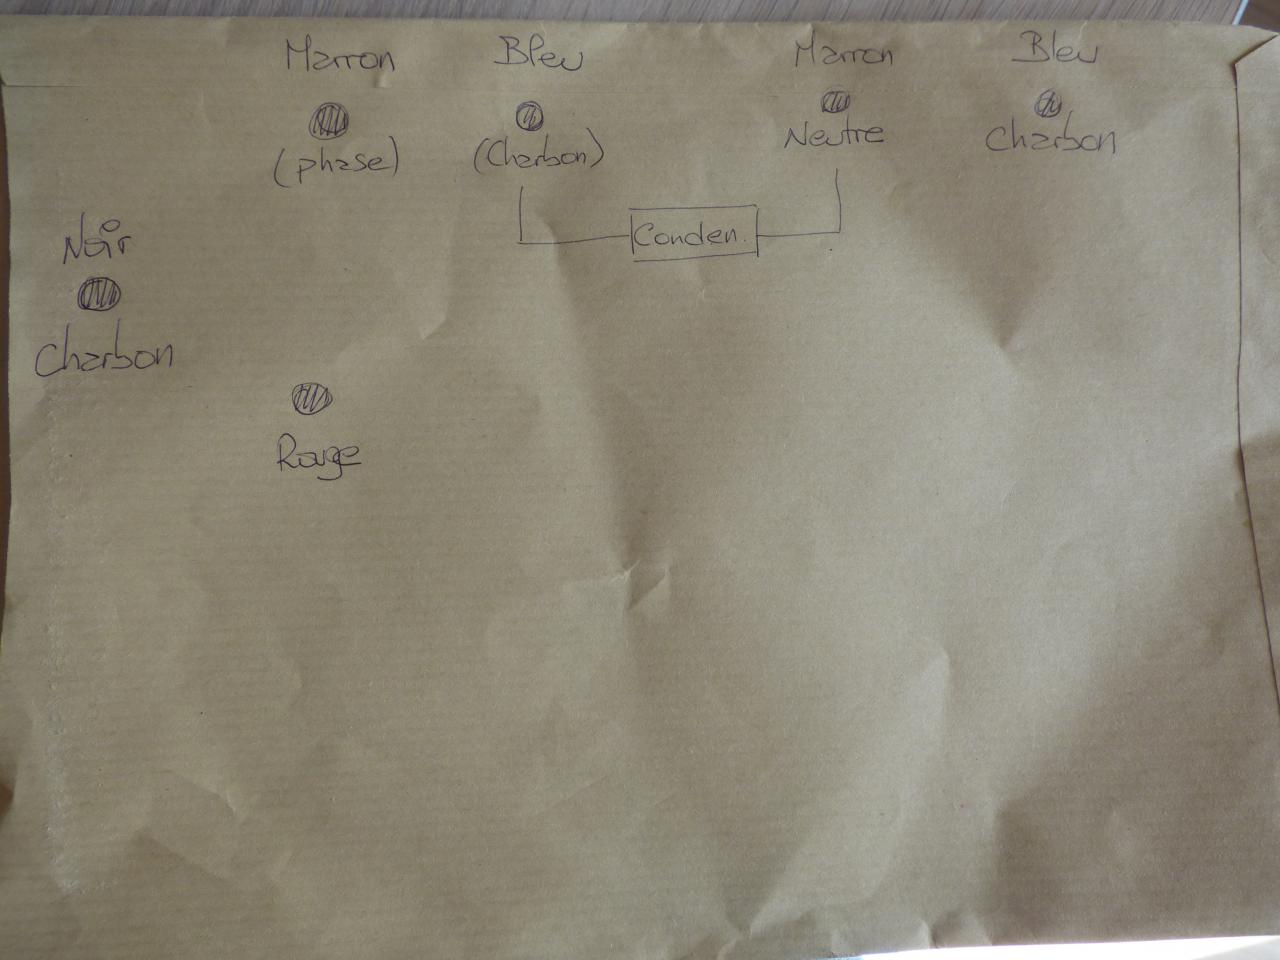 Marron
Bleu
Marron
Bleu
(phase)
(Charbon)
Neutre
Charbon
Conden.
Noir
Charbon
Rouge